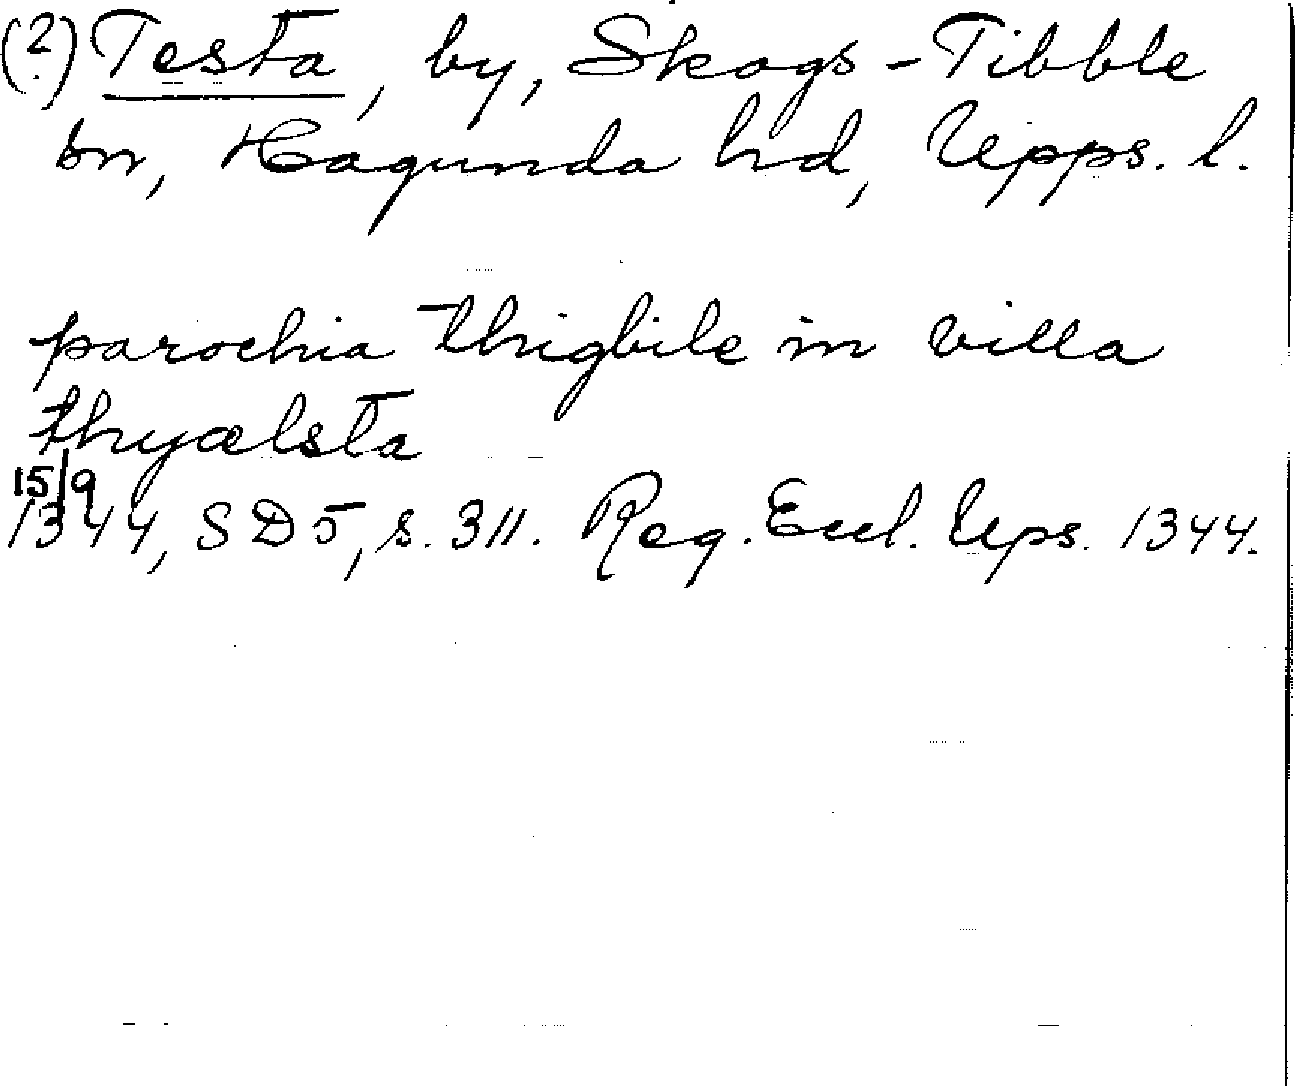 (2) Testa, by, Skogs-Tibble
sn, Hagunda hd, Upps. l.
parochia thigbile in villa
thyælsta
15/9
1344, SD5, s. 311. Reg. Eccl. Ups. 1344.